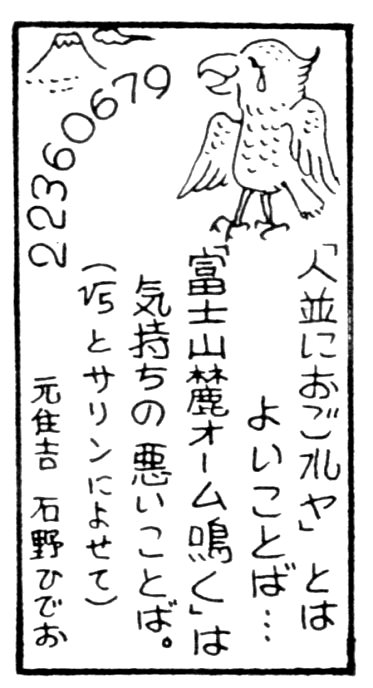 「人並におごれヤ」とは
よいことば…
「富士山麓オーム鳴く」は
気持ちの悪いことば。
(√5とサリンによせて)
元住吉 石野ひでお
22360679